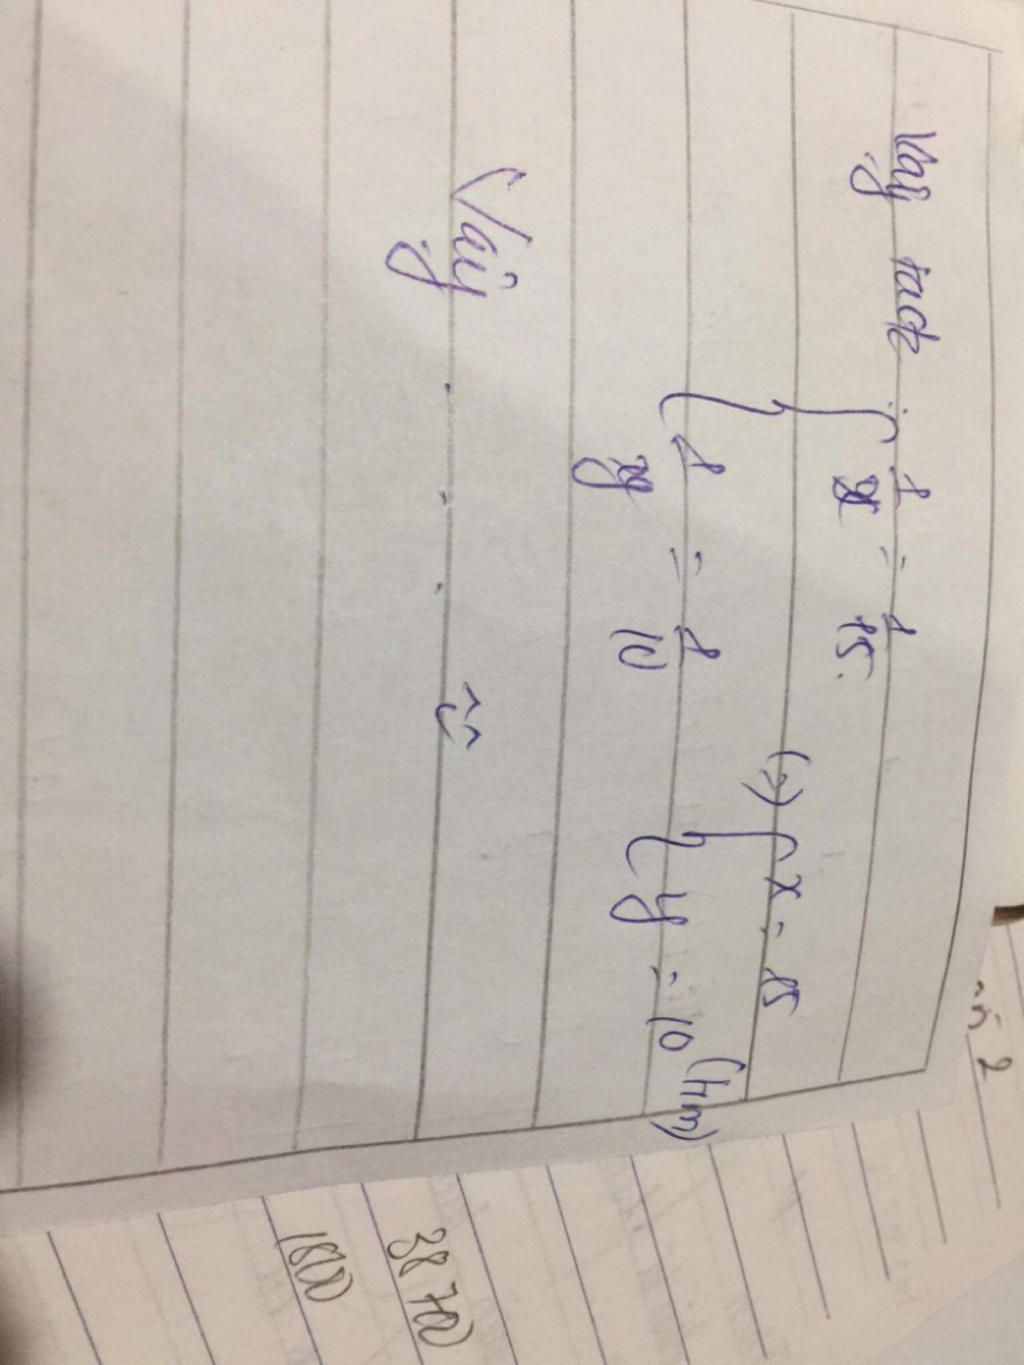 Vậy ta có
{ 1/x = 1/15
{ 1/y = 1/10
(=) { x = 15
{ y = 10 (tm)
Vậy . . .
2
38 700
1800